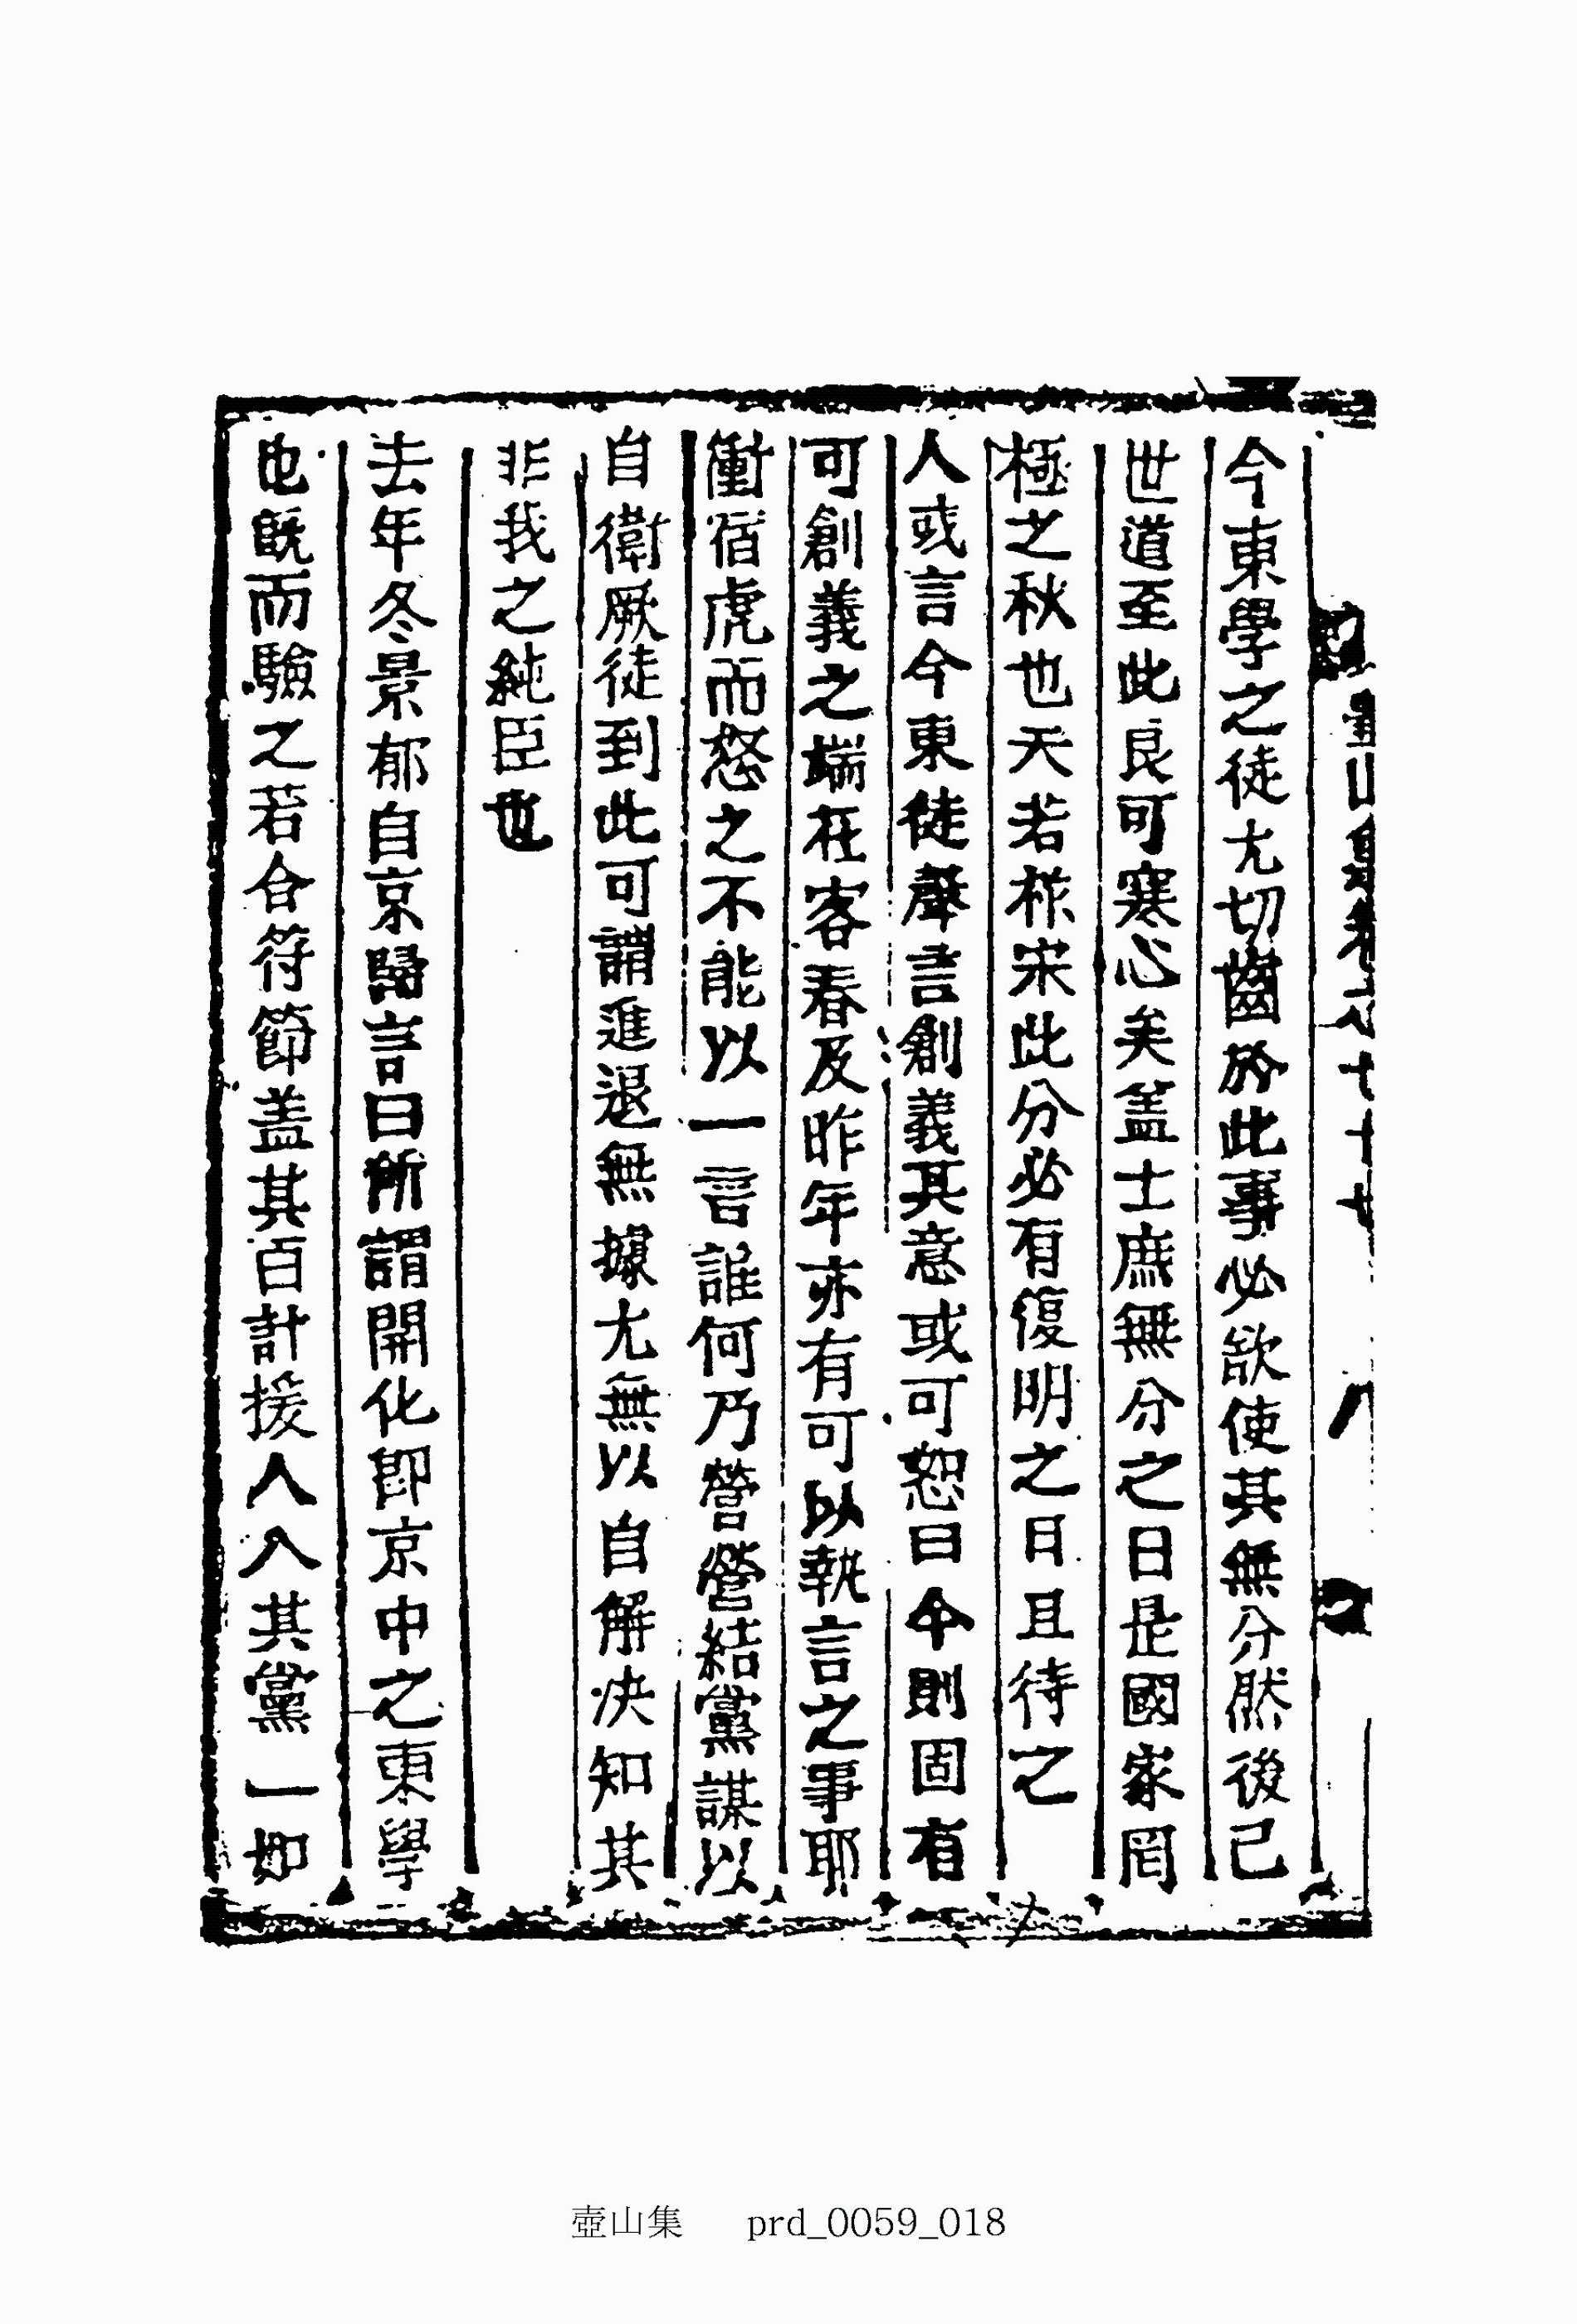 今東學之徒尤切齒於此事必欲使其無分然後已
世道至此良可寒心矣盖士庶無分之日是國家罔
極之秋也天若祚宋此分必有復明之日且待之
人或言今東徒聲言創義其意或可恕曰今則固有
可創義之端在客春及昨年亦有可以執言之事耶
衝宿虎而怒之不能以一言誰何乃營營結黨謀以
自衛厥徒到此可謂進退無據尤無以自解决知其
非我之純臣也
去年冬景郁自京歸言曰所謂開化卽京中之東學
也旣而驗之若合符節盖其百計援人入其黨一如
壺山集 prd_0059_018